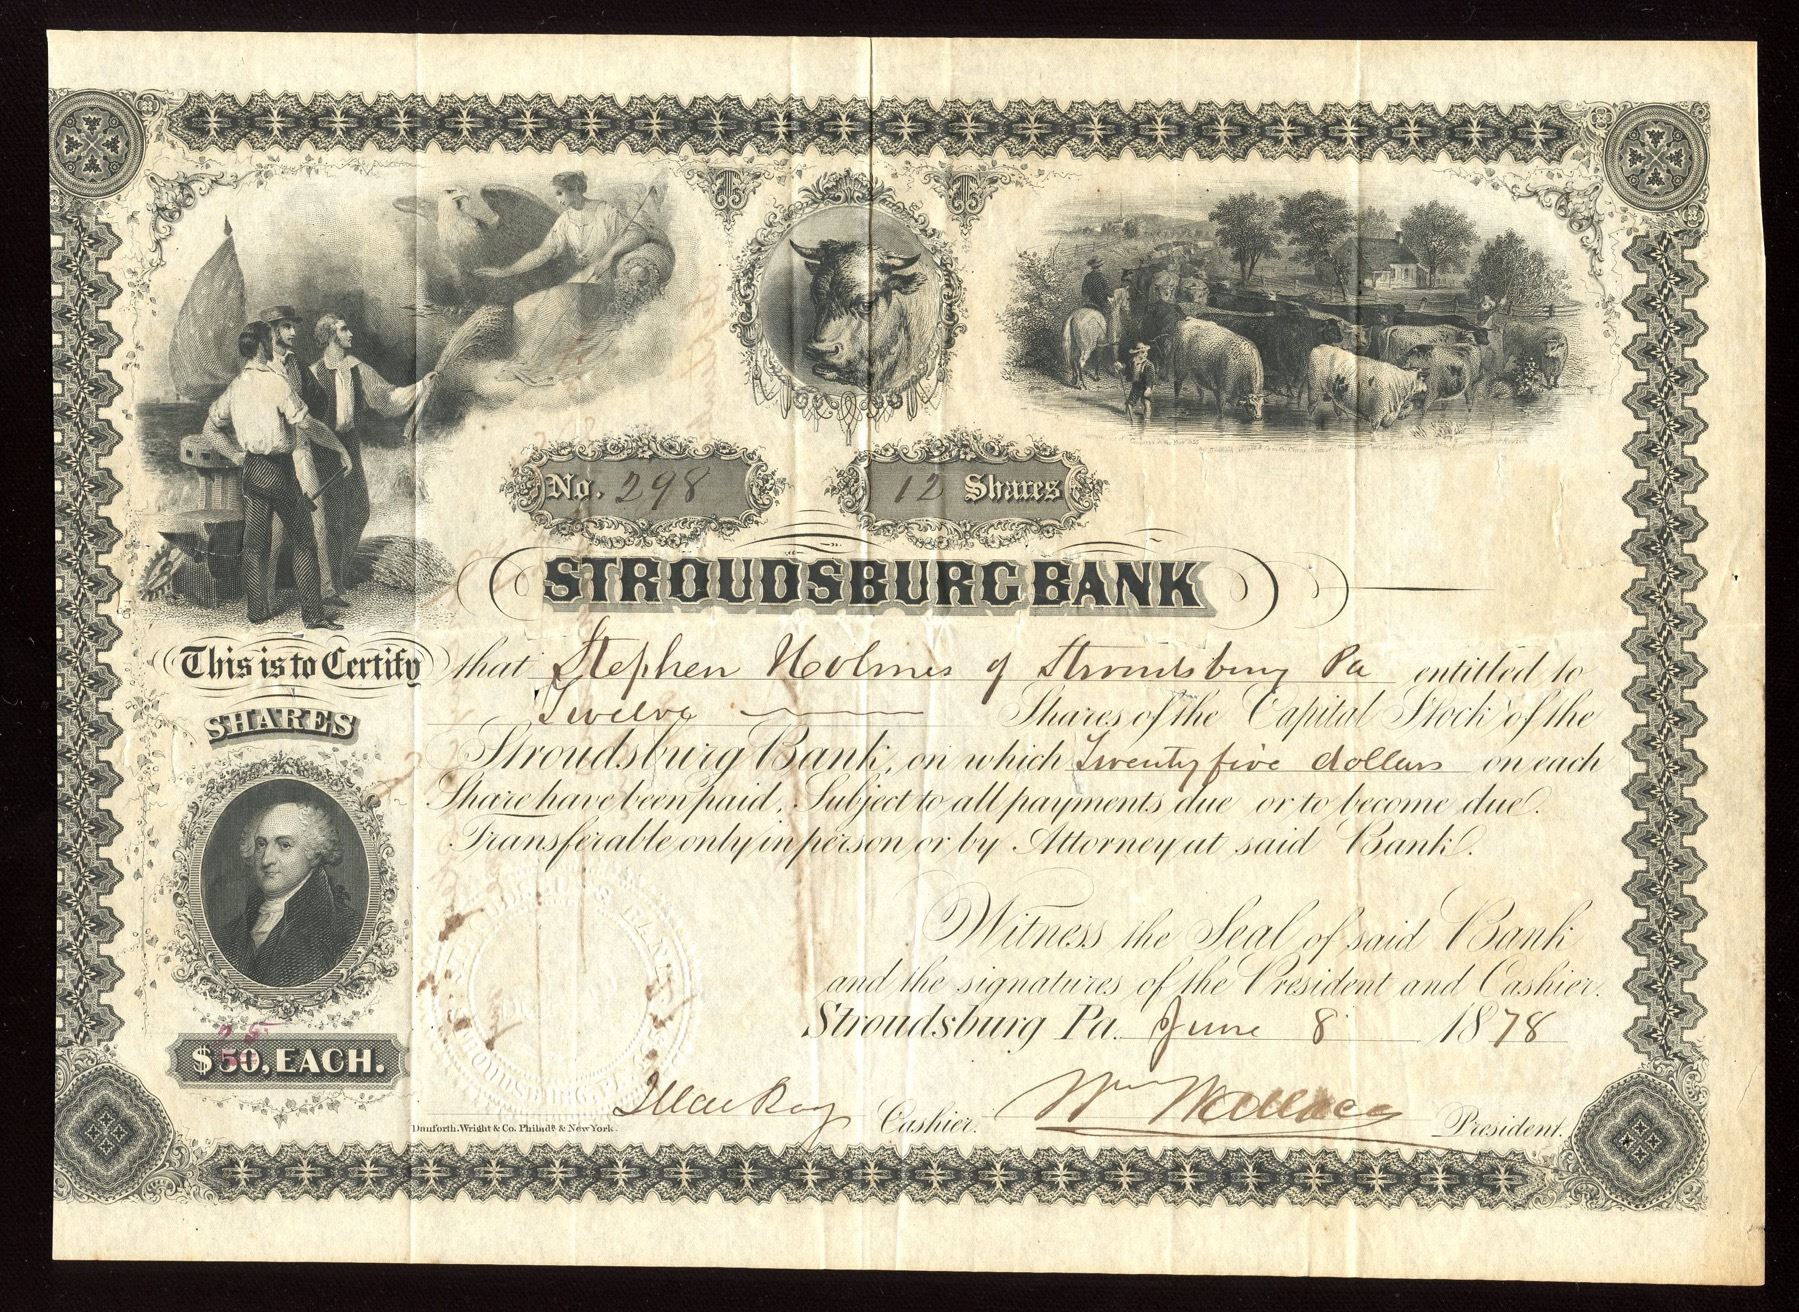 No. 298
12 Shares
STROUDSBURG BANK
This is to Certify that Stephen Holmes of Stroudsburg Pa entitled to
Twelve Shares of the Capital Stock of the
SHARES
Stroudsburg Bank, on which Twenty five dollars on each
Share have been paid. Subject to all payments due or to become due.
Transferable only in person or by Attorney at said Bank.
Witness the Seal of said Bank
and the signatures of the President and Cashier.
Stroudsburg Pa. June 8 1878
25
$50, EACH.
Cashier. Wm Wallace President.
Danforth, Wright & Co. Philada & New York.